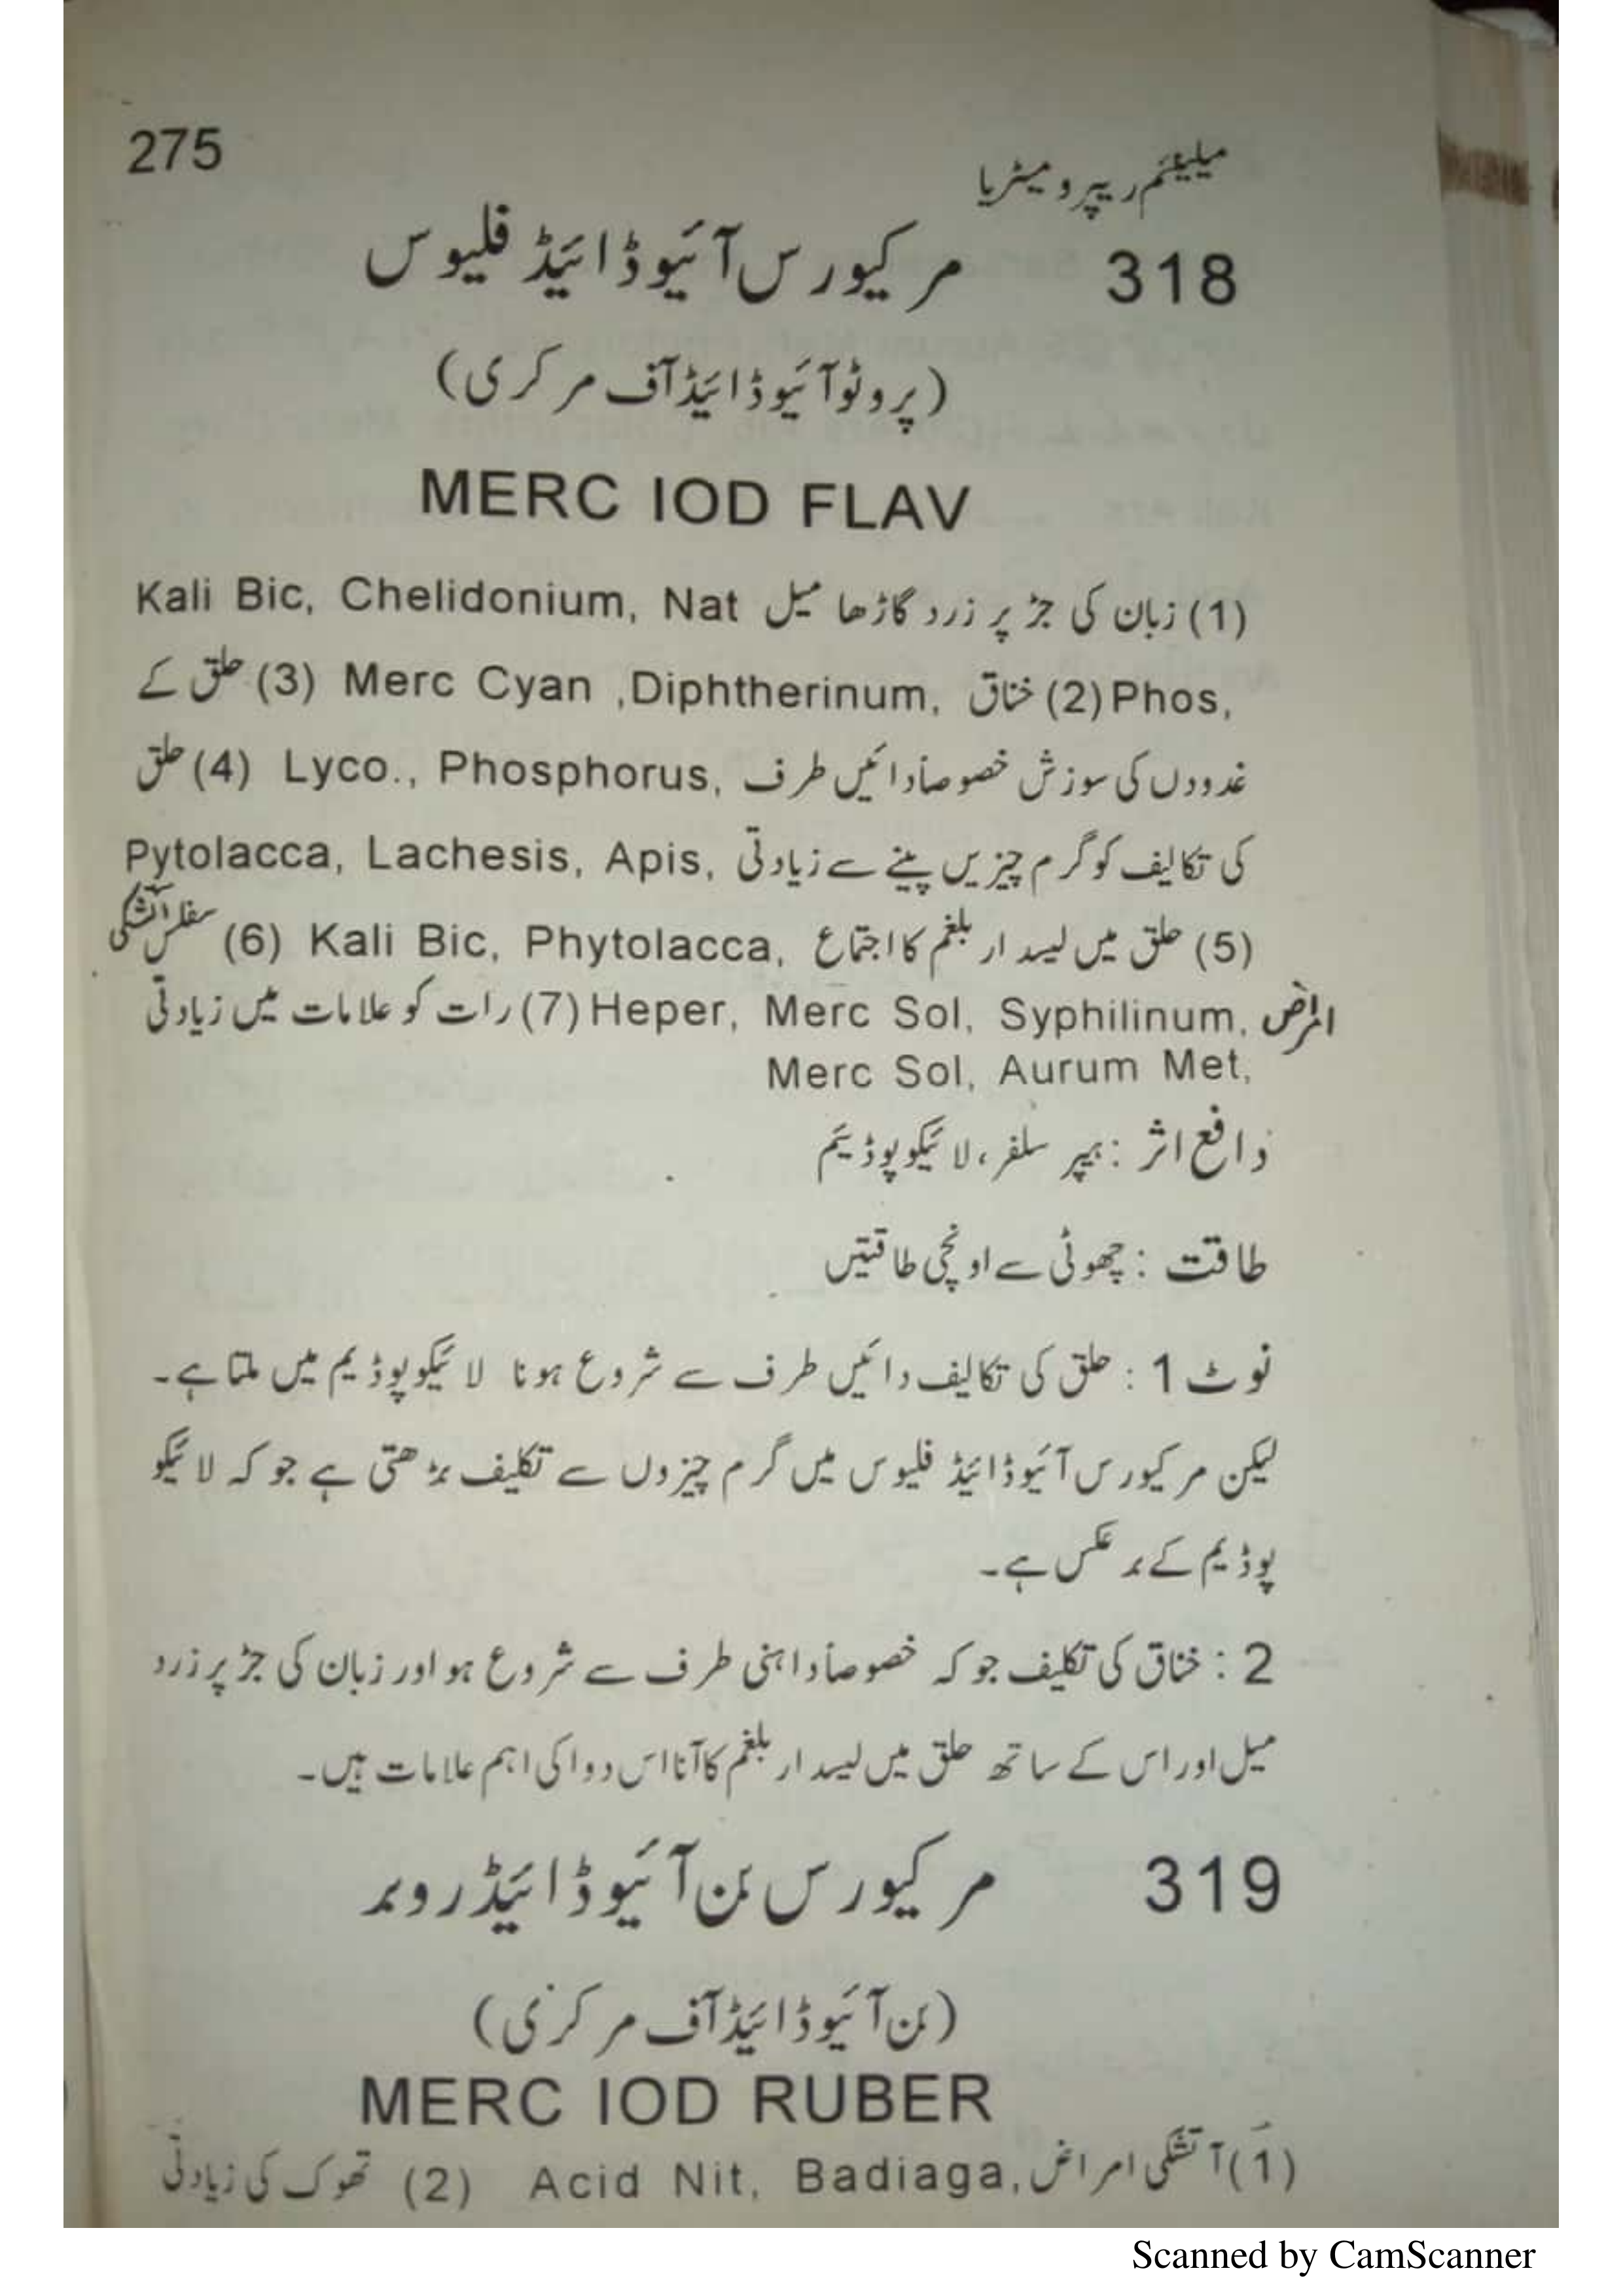 275
میلینئم ریپرومیٹریا
318 مرکیورس آئیوڈائیڈ فلیوس
(پروٹو آئیوڈائیڈ آف مرکری)
MERC IOD FLAV
(1) زبان کی جڑ پر زرد گاڑھا میل Kali Bic, Chelidonium, Nat
Phos, (2) خناق Merc Cyan ,Diphtherinum, (3) حلق کے
غدودوں کی سوزش خصوصاً دائیں طرف Lyco., Phosphorus, (4) حلق
کی تکالیف کو گرم چیزیں پینے سے زیادتی Pytolacca, Lachesis, Apis,
(5) حلق میں لیسدار بلغم کا اجتماع Kali Bic, Phytolacca, (6) سفلس آتشکی
امراض Heper, Merc Sol, Syphilinum, (7) رات کو علامات میں زیادتی
Merc Sol, Aurum Met,
دافع اثر : ہیپر سلفر، لائیکوپوڈیئم
طاقت : چھوٹی سے اونچی طاقتیں
نوٹ 1 : حلق کی تکالیف دائیں طرف سے شروع ہونا لائیکوپوڈیم میں ملتا ہے۔
لیکن مرکیورس آئیوڈائیڈ فلیوس میں گرم چیزوں سے تکلیف بڑھتی ہے جو کہ لائیکو
پوڈیم کے برعکس ہے۔
2 : خناق کی تکلیف جو کہ خصوصاً داہنی طرف سے شروع ہو اور زبان کی جڑ پر زرد
میل اور اس کے ساتھ حلق میں لیسدار بلغم کا آنا اس دوا کی اہم علامات ہیں۔
319 مرکیورس بن آئیوڈائیڈ روبر
(بن آئیوڈائیڈ آف مرکری)
MERC IOD RUBER
(1) آتشکی امراض Acid Nit, Badiaga, (2) تھوک کی زیادتی
Scanned by CamScanner